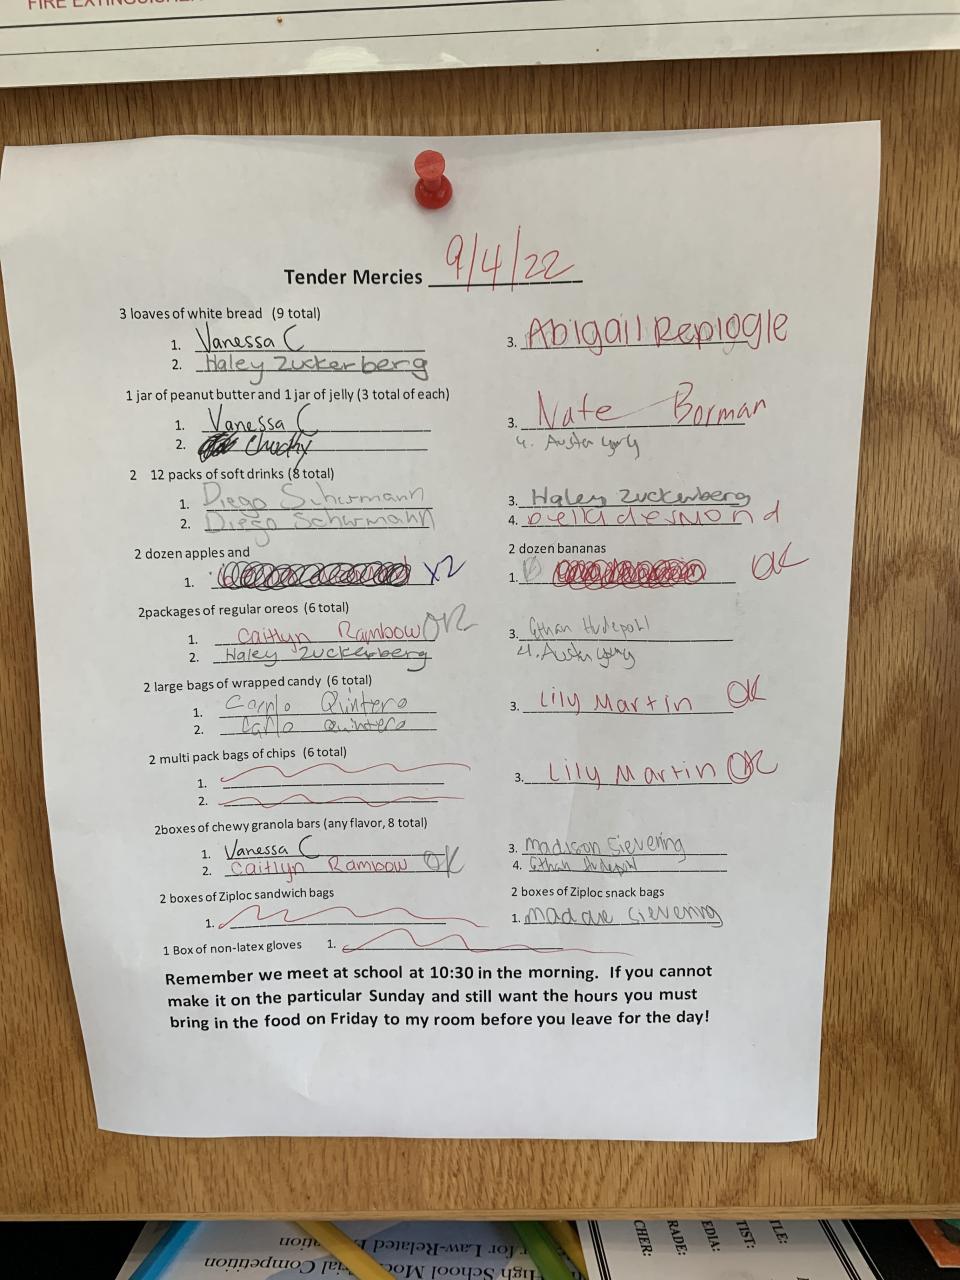 FIRE EXTINGUISHER
Tender Mercies 9/4/22
3 loaves of white bread (9 total)
1. Vanessa C
2. Haley Zuckerberg
3. Abigail Replogle
1 jar of peanut butter and 1 jar of jelly (3 total of each)
1. Vanessa C
2.
3. Nate Borman
4. Austin
2 12 packs of soft drinks (8 total)
1. Diego Schurmann
2. Diego Schurmann
3. Haley Zuckerberg
4. bella desmond
2 dozen apples and
1. x2
2 dozen bananas
1. OK
2packages of regular oreos (6 total)
1. Caitlyn Rambow OK
2. Haley Zuckerberg
3. Ethan Hudepohl
4. Austin
2 large bags of wrapped candy (6 total)
1. Carlo Quintero
2. Carlo Quintero
3. Lily Martin OK
2 multi pack bags of chips (6 total)
1.
2.
3. Lily Martin OK
2boxes of chewy granola bars (any flavor, 8 total)
1. Vanessa C
2. Caitlyn Rambow OK
3. madison Sievering
4. Ethan Hudepohl
2 boxes of Ziploc sandwich bags
1.
2 boxes of Ziploc snack bags
1. Sievering
1 Box of non-latex gloves 1.
Remember we meet at school at 10:30 in the morning. If you cannot
make it on the particular Sunday and still want the hours you must
bring in the food on Friday to my room before you leave for the day!
for Law-Related
High School Competition
TLE:
TIST:
EDIA:
RADE:
CHER: